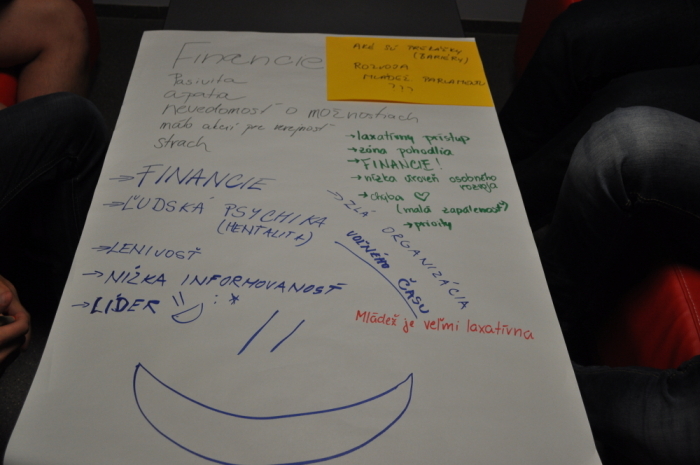 Financie
Pasivita
apatia
nevedomosť o možnostiach
málo akcií pre verejnosť
strach
AKÉ SÚ PREKÁŽKY
(BARIÉRY)
ROZVOJA
MLÁDEŽ PARLAMENTU
???
→ laxatívny prístup
→ zóna pohodlia
→ FINANCIE!
→ nízka úroveň osobného
rozvoja
→ chýba ♡
(malá zapálenosť)
→ priority
→ FINANCIE
→ ĽUDSKÁ PSYCHIKA
(MENTALITA)
→ LENIVOSŤ
→ NÍZKA INFORMOVANOSŤ
→ LÍDER :*
→ ZLÁ ORGANIZÁCIA
VOĽNÉHO ČASU
Mládež je veľmi laxatívna